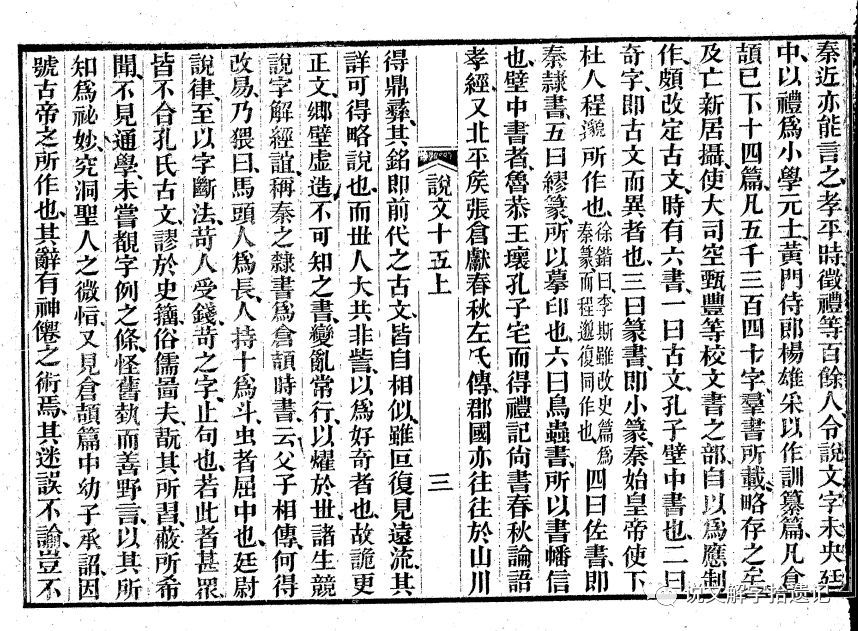 秦近亦能言之孝平時徵禮等百餘人令說文字未央廷
中以禮爲小學元士黃門侍郎楊雄采以作訓纂篇凡倉
頡已下十四篇凡五千三百四十字羣書所載略存之矣
及亡新居攝使大司空甄豐等校文書之部自以爲應制
作頗改定古文時有六書一曰古文孔子壁中書也二曰
奇字即古文而異者也三曰篆書即小篆秦始皇帝使下
杜人程邈所作也徐鍇曰李斯雖改史篇爲秦篆而程邈復同作也四曰佐書即
秦隸書五曰繆篆所以摹印也六曰鳥蟲書所以書幡信
也壁中書者魯恭王壞孔子宅而得禮記尚書春秋論語
孝經又北平矦張倉獻春秋左氏傳郡國亦往往於山川
說文十五上 三
得鼎彝其銘即前代之古文皆自相似雖叵復見遠流其
詳可得略說也而世人大共非訾以爲好奇者也故詭更
正文鄉壁虛造不可知之書變亂常行以燿於世諸生競
說字解經誼稱秦之隸書爲倉頡時書云父子相傳何得
改易乃猥曰馬頭人爲長人持十爲斗虫者屈中也廷尉
說律至以字斷法苛人受錢苛之字止句也若此者甚眾
皆不合孔氏古文謬於史籒俗儒啚夫翫其所習蔽所希
聞不見通學未嘗覩字例之條怪舊埶而善野言以其所
知爲祕妙究洞聖人之微恉又見倉頡篇中幼子承詔因
號古帝之所作也其辭有神僊之術焉其迷誤不諭豈不
说文解字拾遗记